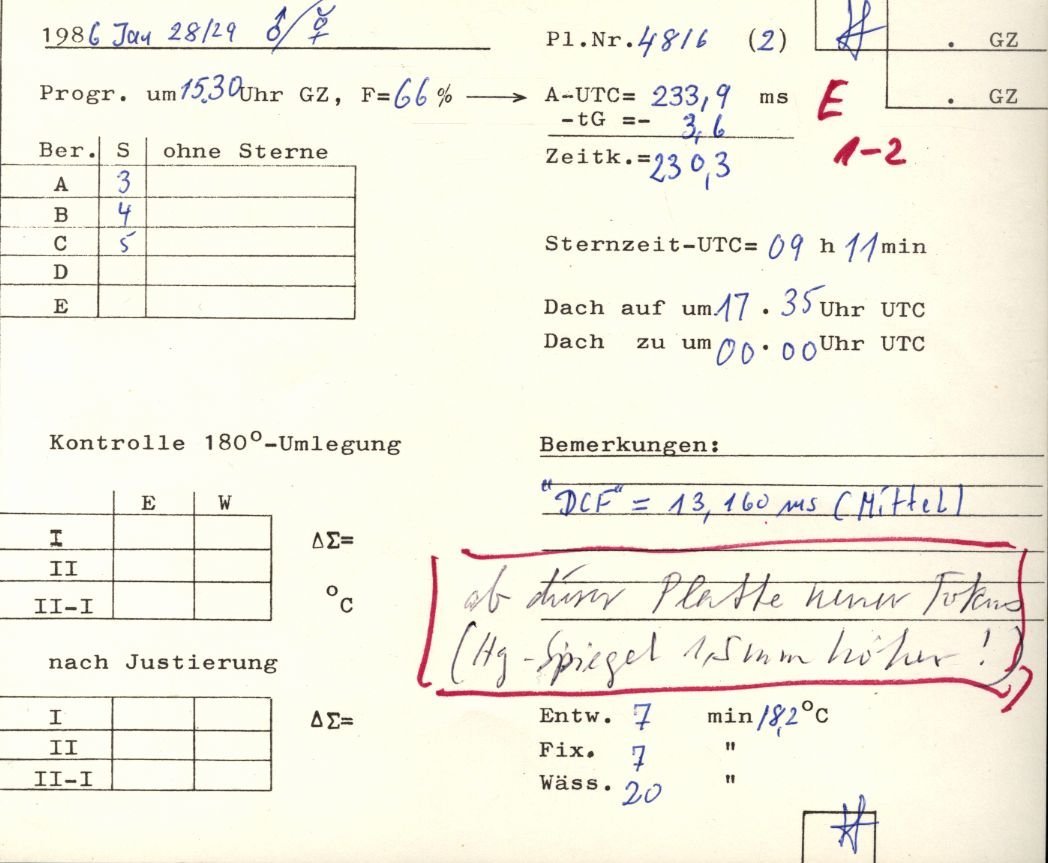 1986 Jan 28/29 ♂/☿
Pl.Nr. 4816 (2)
. GZ
Progr. um 15.30 Uhr GZ, F=66% → A-UTC= 233,9 ms
. GZ
-tG =- 3,6
E
Zeitk.=230,3
1-2
Ber. S ohne Sterne
A 3
B 4
C 5
D
E
Sternzeit-UTC= 09 h 11 min
Dach auf um 17.35 Uhr UTC
Dach zu um 00.00 Uhr UTC
Kontrolle 180°-Umlegung
E W
I ΔΣ=
II
II-I °C
nach Justierung
I ΔΣ=
II
II-I
Bemerkungen:
"DCF" = 13,160 ms (Mittel)
ab dieser Platte neuer Fokus
(Hg-Spiegel 1,5mm höher!)
Entw. 7 min 18,2°C
Fix. 7 "
Wäss. 20 "